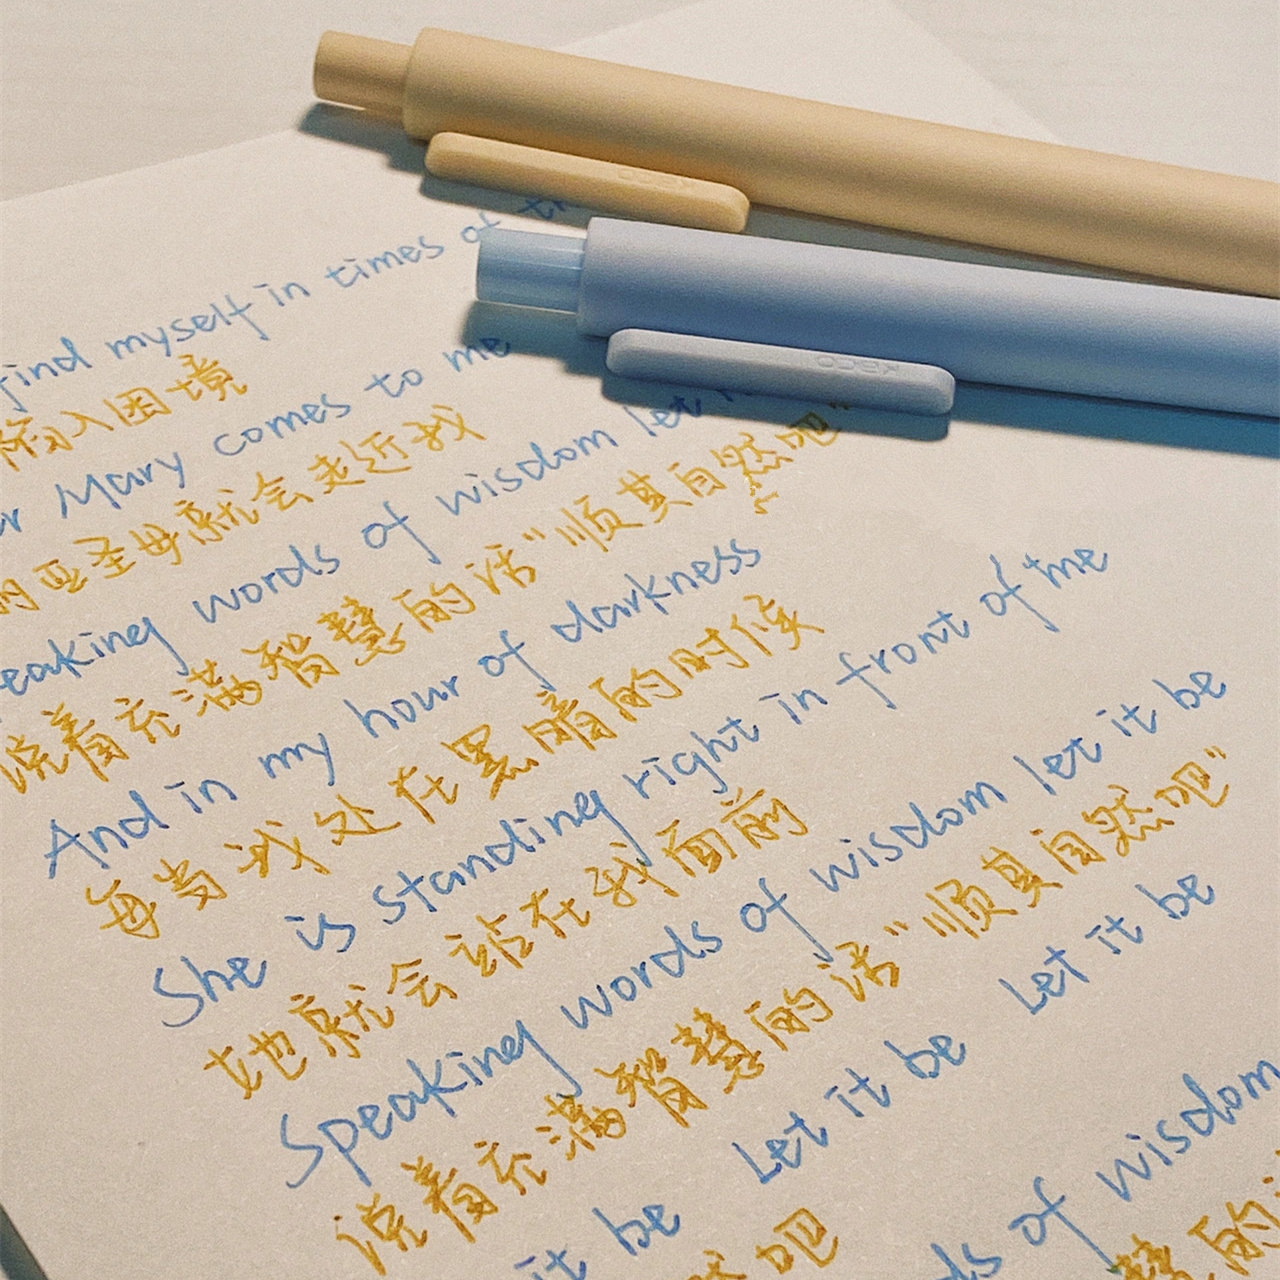 find myself in times of
陷入困境
Mary comes to me
圣母就会走近我
words of wisdom let
说着充满智慧的话"顺其自然吧"
And in my hour of darkness
每当我处在黑暗的时候
She is standing right in front of me
她就会站在我面前
Speaking words of wisdom let it be
说着充满智慧的话"顺其自然吧"
it be Let it be Let it be
吧
of wisdom
慧的
KACO
KACO